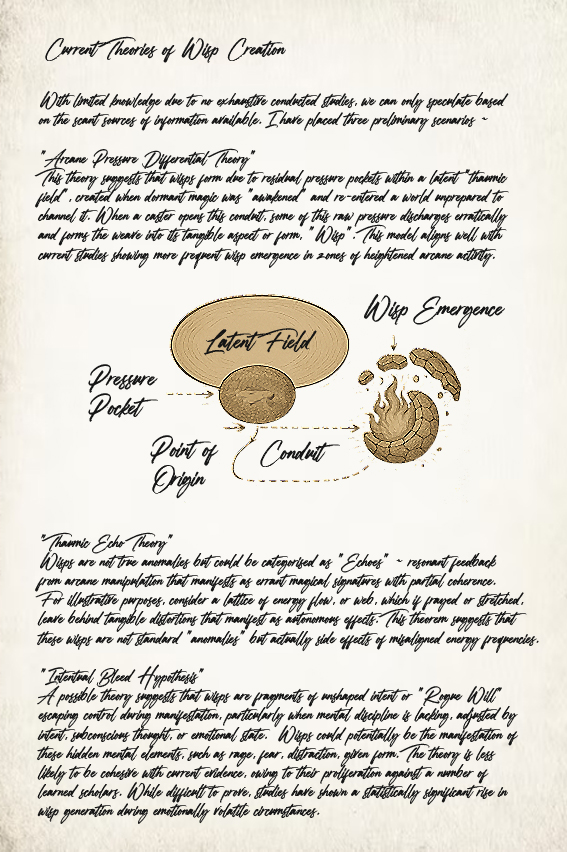 Current Theories of Wisp Creation
With limited knowledge due to no exhaustive conducted studies, we can only speculate based
on the scant sources of information available. I have placed three preliminary scenarios ~
"Arcane Pressure Differential Theory"
This theory suggests that wisps form due to residual pressure pockets within a latent "thaumic
field", created when dormant magic was "awakened" and re-entered a world unprepared to
channel it. When a caster opens this conduit, some of this raw pressure discharges erratically
and forms the weave into its tangible aspect or form, "Wisp". This model aligns well with
current studies showing more frequent wisp emergence in zones of heightened arcane activity.
Wisp Emergence
Latent Field
Pressure
Pocket
Point of
Origin
Conduit
"Thaumic Echo Theory"
Wisps are not true anomalies but could be categorised as "Echoes" ~ resonant feedback
from arcane manipulation that manifests as errant magical signatures with partial coherence.
For illustrative purposes, consider a lattice of energy flow, or web, which if frayed or stretched,
leave behind tangible distortions that manifest as autonomous effects. This theorem suggests that
these wisps are not standard "anomalies" but actually side effects of misaligned energy frequencies.
"Intentual Bleed Hypothesis"
A possible theory suggests that wisps are fragments of unshaped intent or "Rogue Will"
escaping control during manifestation, particularly when mental discipline is lacking, adjusted by
intent, subconscious thought, or emotional state. Wisps could potentially be the manifestation of
these hidden mental elements, such as rage, fear, distraction, given form. The theory is less
likely to be cohesive with current evidence, owing to their proliferation against a number of
learned scholars. While difficult to prove, studies have shown a statistically significant rise in
wisp generation during emotionally volatile circumstances.